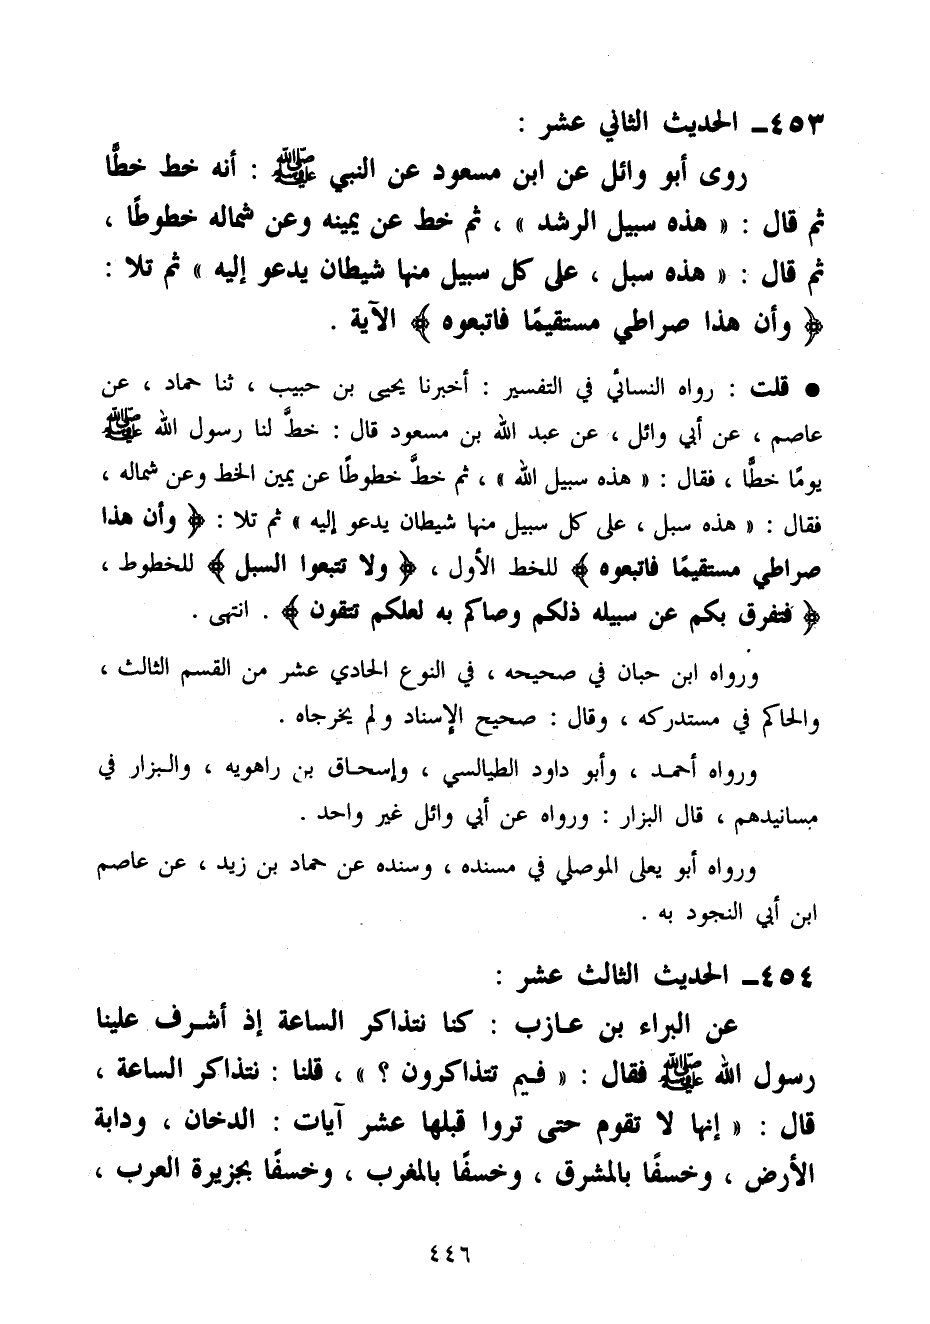 ٤٥٣ـ الحديث الثاني عشر :
روى أبو وائل عن ابن مسعود عن النبي ﷺ : أنه خط خطًّا
ثم قال : « هذه سبيل الرشد » ، ثم خط عن يمينه وعن شماله خطوطًا ،
ثم قال : « هذه سبل ، على كل سبيل منها شيطان يدعو إليه » ثم تلا :
﴿ وأن هذا صراطي مستقيمًا فاتبعوه ﴾ الآية .
● قلت : رواه النسائي في التفسير : أخبرنا يحيى بن حبيب ، ثنا حماد ، عن
عاصم ، عن أبي وائل ، عن عبد الله بن مسعود قال : خطَّ لنا رسول الله ﷺ
يومًا خطًّا ، فقال : « هذه سبيل الله » ، ثم خطَّ خطوطًا عن يمين الخط وعن شماله ،
فقال : « هذه سبل ، على كل سبيل منها شيطان يدعو إليه » ثم تلا : ﴿ وأن هذا
صراطي مستقيمًا فاتبعوه ﴾ للخط الأول ، ﴿ ولا تتبعوا السبل ﴾ للخطوط ،
﴿ فتفرق بكم عن سبيله ذلكم وصاكم به لعلكم تتقون ﴾ . انتهى .
ورواه ابن حبان في صحيحه ، في النوع الحادي عشر من القسم الثالث ،
والحاكم في مستدركه ، وقال : صحيح الإسناد ولم يخرجاه .
ورواه أحمد ، وأبو داود الطيالسي ، وإسحاق بن راهويه ، والبزار في
مسانيدهم ، قال البزار : ورواه عن أبي وائل غير واحد .
ورواه أبو يعلى الموصلي في مسنده ، وسنده عن حماد بن زيد ، عن عاصم
ابن أبي النجود به .
٤٥٤ـ الحديث الثالث عشر :
عن البراء بن عازب : كنا نتذاكر الساعة إذ أشرف علينا
رسول الله ﷺ فقال : « فيم تتذاكرون ؟ » ، قلنا : نتذاكر الساعة ،
قال : « إنها لا تقوم حتى تروا قبلها عشر آيات : الدخان ، ودابة
الأرض ، وخسفًا بالمشرق ، وخسفًا بالمغرب ، وخسفًا بجزيرة العرب ،
٤٤٦